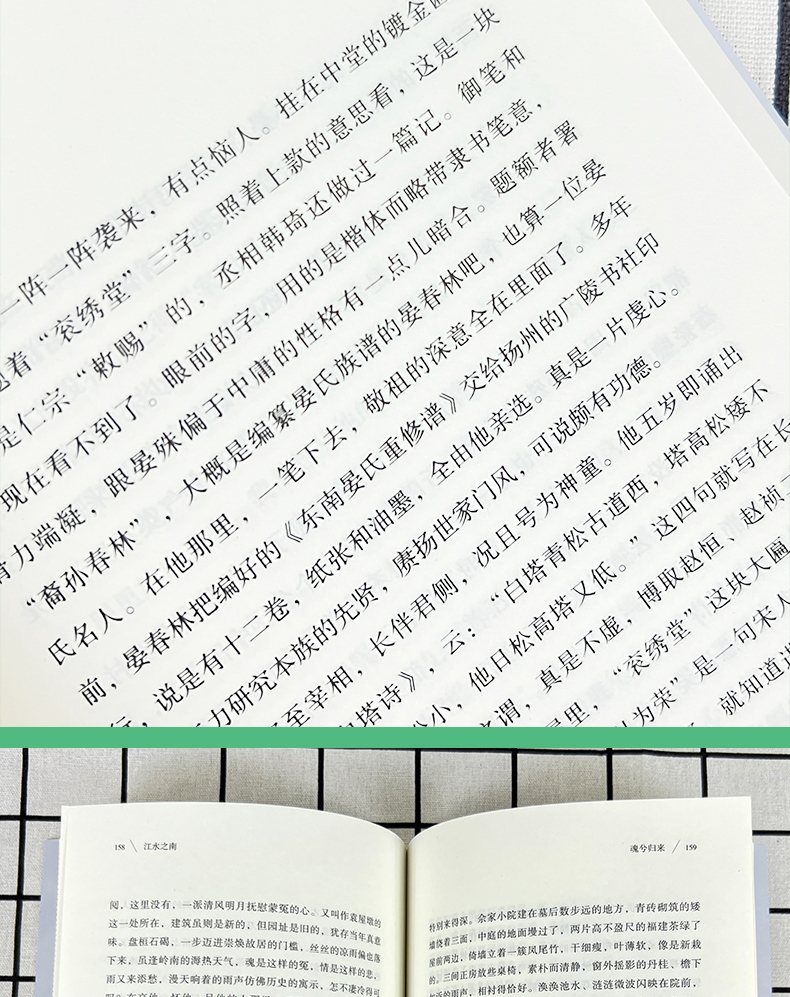 一阵一阵袭来，有点恼人。挂在中堂的镀金匾
着“衮绣堂”三字。照着上款的意思看，这是一块
是仁宗“敕赐”的，丞相韩琦还做过一篇记。御笔和
现在看不到了。眼前的字，用的是楷体而略带隶书笔意，
力端凝，跟晏殊偏于中庸的性格有一点儿暗合。题额者署
“裔孙春林”，大概是编纂晏氏族谱的晏春林吧，也算一位晏
氏名人。在他那里，一笔下去，敬祖的深意全在里面了。多年
前，晏春林把编好的《东南晏氏重修谱》交给扬州的广陵书社印
行，说是有十二卷，纸张和油墨，全由他亲选。真是一片虔心。
力研究本族的先贤，赓扬世家门风，可说颇有功德。
至宰相，长伴君侧，况且号为神童。他五岁即诵出
白塔诗》，云：“白塔青松古道西，塔高松矮不
小，他日松高塔又低。”这四句就写在长
之谓，真是不虚，博取赵恒、赵祯
里，“衮绣堂”这块大匾
为荣”是一句宋人
就知道
158 \ 江水之南
阅，这里没有，一派清风明月抚慰蒙冤的心。又叫作袁屋墩的
这一处所在，建筑虽则是新的，但园址是旧的，犹存当年真意
味。盘桓石碣，一步迈进崇焕故居的门槛，丝丝的凉雨偏也落
下来，虽逢岭南的溽热天气，魂是这样的冤，情是这样的悲，
雨又来添愁，漫天响着的雨声仿佛历史的寓示，怎不凄冷得可
魂兮归来 / 159
特别来得深。佘家小院建在墓后数步远的地方，青砖砌筑的矮
墙绕着三面，中庭的地面墁过了，两片高不盈尺的福建茶绿了
屋前两边，倚墙立着一簇凤尾竹，干细瘦，叶薄软，像是新栽
的。三间正房放些桌椅，素朴而清静，窗外摇影的丹桂、檐下
的雨声，相衬得恰好。涣涣池水、涟涟微波闪映在院前，